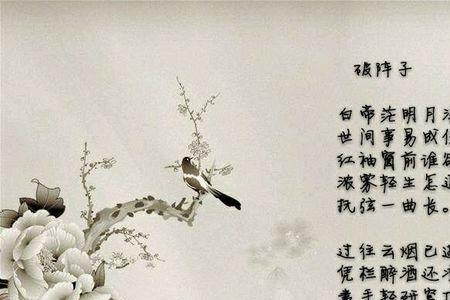 破阵子
白帝茫明月
世间事易成
红袖窗前谁
浓雾轻生怎
抚弦一曲长。
过往云烟已
凭栏醉酒还